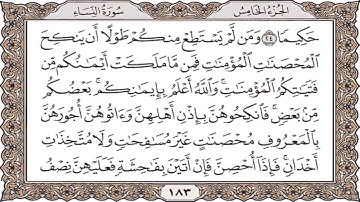 الجزء الخامس
سورة النساء
حَكِيمًا ٢٤ وَمَن لَّمْ يَسْتَطِعْ مِنكُمْ طَوْلًا أَن يَنكِحَ
الْمُحْصَنَاتِ الْمُؤْمِنَاتِ فَمِن مَّا مَلَكَتْ أَيْمَانُكُم مِّن
فَتَيَاتِكُمُ الْمُؤْمِنَاتِ وَاللَّهُ أَعْلَمُ بِإِيمَانِكُم بَعْضُكُم
مِّن بَعْضٍ فَانكِحُوهُنَّ بِإِذْنِ أَهْلِهِنَّ وَءَاتُوهُنَّ أُجُورَهُنَّ
بِالْمَعْرُوفِ مُحْصَنَاتٍ غَيْرَ مُسَافِحَاتٍ وَلَا مُتَّخِذَاتِ
أَخْدَانٍ فَإِذَا أُحْصِنَّ فَإِنْ أَتَيْنَ بِفَاحِشَةٍ فَعَلَيْهِنَّ نِصْفُ
١٨٣